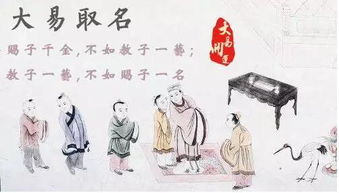 大易取名
赐子千金,不如教子一艺;
教子一艺,不如赐子一名
大易